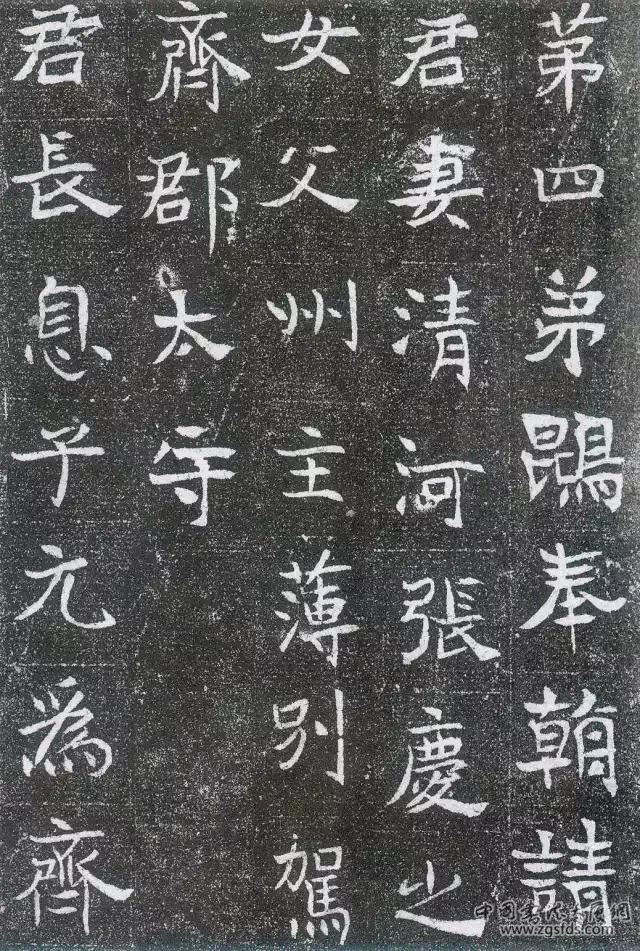 苐四弟鵾奉朝請
君妻清河張慶之
女父州主薄別駕
齊郡太守
君長息子元為齊
中国书法发展网
www.zgsfds.com